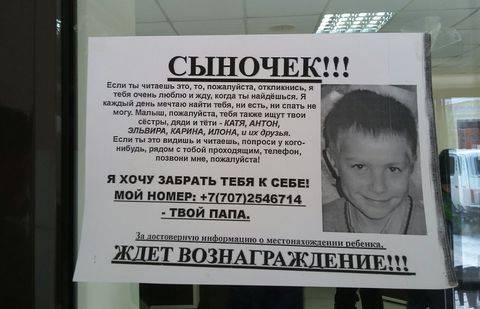 СЫНОЧЕК!!!
Если ты читаешь это, то, пожалуйста, откликнись, я
тебя очень люблю и жду, когда ты найдёшься. Я
каждый день мечтаю найти тебя, ни есть, ни спать не
могу. Малыш, пожалуйста, тебя также ищут твои
сёстры, дяди и тёти - КАТЯ, АНТОН,
ЭЛЬВИРА, КАРИНА, ИЛОНА, и их друзья.
Если ты это видишь и читаешь, попроси у кого-
нибудь, рядом с тобой проходящим, телефон,
позвони мне, пожалуйста!
Я ХОЧУ ЗАБРАТЬ ТЕБЯ К СЕБЕ!
МОЙ НОМЕР: +7(707)2546714
- ТВОЙ ПАПА.
За достоверную информацию о местонахождении ребенка,
ЖДЕТ ВОЗНАГРАЖДЕНИЕ!!!